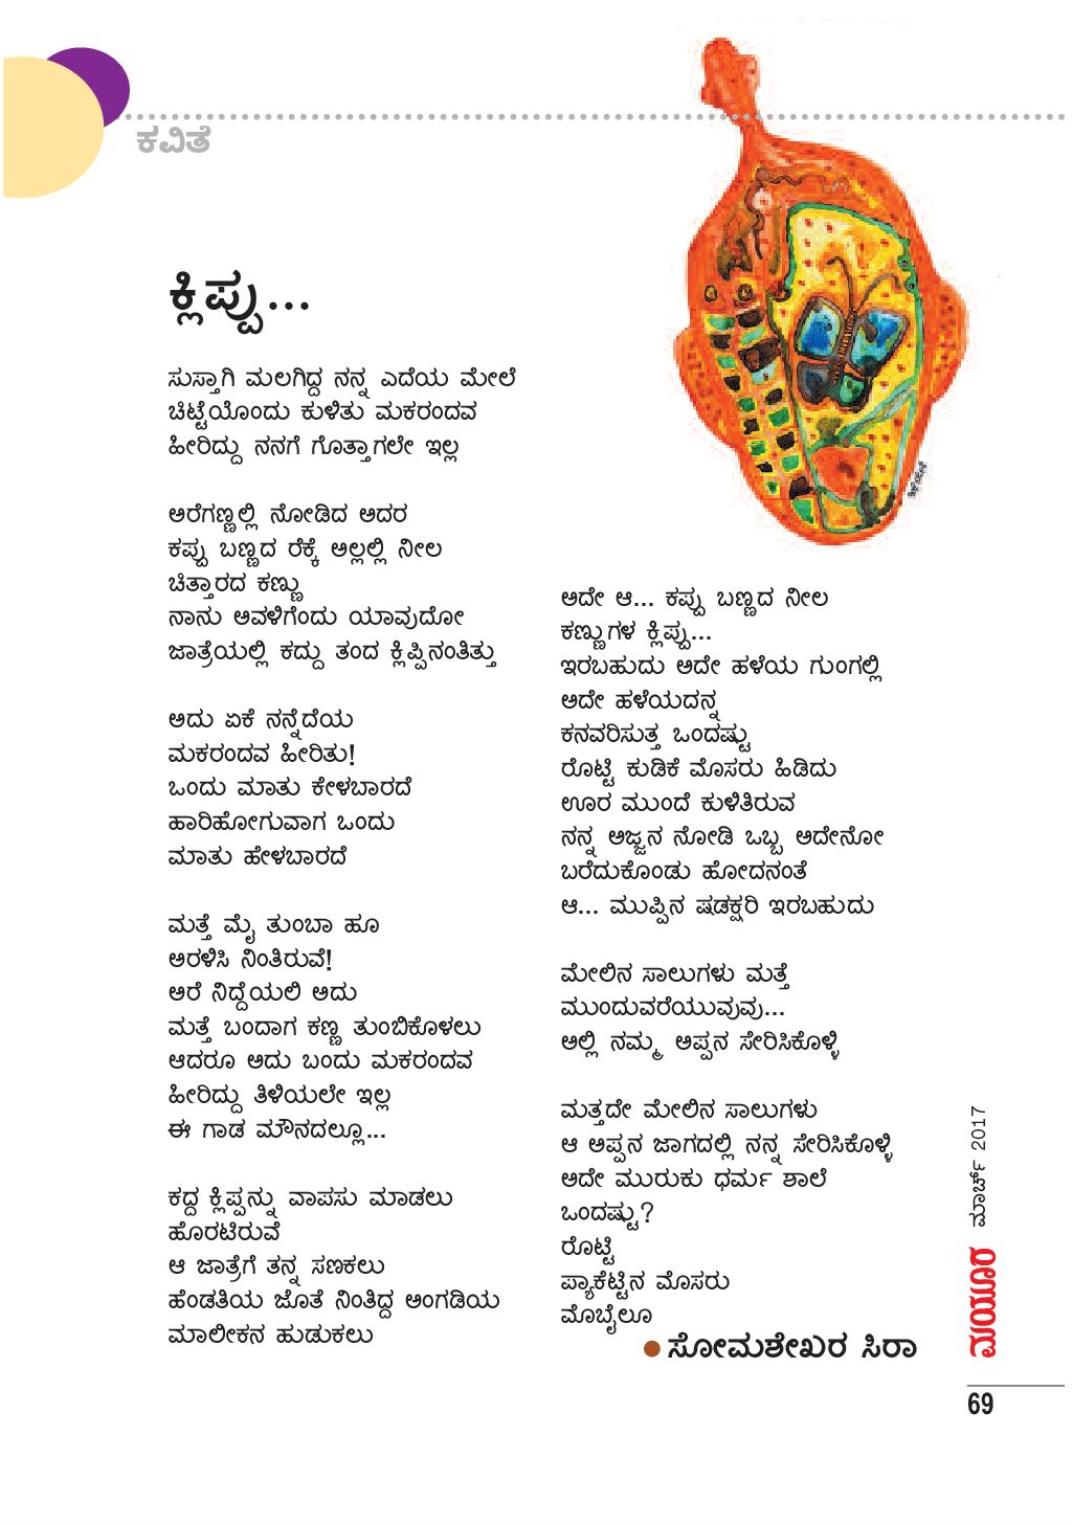 ಕವಿತೆ
ಕ್ಲಿಪ್ಪು...
ಸುಸ್ತಾಗಿ ಮಲಗಿದ್ದ ನನ್ನ ಎದೆಯ ಮೇಲೆ
ಚಿಟ್ಟೆಯೊಂದು ಕುಳಿತು ಮಕರಂದವ
ಹೀರಿದ್ದು ನನಗೆ ಗೊತ್ತಾಗಲೇ ಇಲ್ಲ
ಅರೆಗಣ್ಣಲ್ಲಿ ನೋಡಿದ ಅದರ
ಕಪ್ಪು ಬಣ್ಣದ ರೆಕ್ಕೆ ಅಲ್ಲಲ್ಲಿ ನೀಲ
ಚಿತ್ತಾರದ ಕಣ್ಣು
ನಾನು ಅವಳಿಗೆಂದು ಯಾವುದೋ
ಜಾತ್ರೆಯಲ್ಲಿ ಕದ್ದು ತಂದ ಕ್ಲಿಪ್ಪಿನಂತಿತ್ತು
ಅದು ಏಕೆ ನನ್ನೆದೆಯ
ಮಕರಂದವ ಹೀರಿತು!
ಒಂದು ಮಾತು ಕೇಳಬಾರದೆ
ಹಾರಿಹೋಗುವಾಗ ಒಂದು
ಮಾತು ಹೇಳಬಾರದೆ
ಮತ್ತೆ ಮೈ ತುಂಬಾ ಹೂ
ಅರಳಿಸಿ ನಿಂತಿರುವೆ!
ಅರೆ ನಿದ್ದೆಯಲಿ ಅದು
ಮತ್ತೆ ಬಂದಾಗ ಕಣ್ಣ ತುಂಬಿಕೊಳಲು
ಆದರೂ ಅದು ಬಂದು ಮಕರಂದವ
ಹೀರಿದ್ದು ತಿಳಿಯಲೇ ಇಲ್ಲ
ಈ ಗಾಡ ಮೌನದಲ್ಲೂ...
ಕದ್ದ ಕ್ಲಿಪ್ಪನ್ನು ವಾಪಸು ಮಾಡಲು
ಹೊರಟಿರುವೆ
ಆ ಜಾತ್ರೆಗೆ ತನ್ನ ಸಣಕಲು
ಹೆಂಡತಿಯ ಜೊತೆ ನಿಂತಿದ್ದ ಅಂಗಡಿಯ
ಮಾಲೀಕನ ಹುಡುಕಲು
ಅದೇ ಆ... ಕಪ್ಪು ಬಣ್ಣದ ನೀಲ
ಕಣ್ಣುಗಳ ಕ್ಲಿಪ್ಪು...
ಇರಬಹುದು ಅದೇ ಹಳೆಯ ಗುಂಗಲ್ಲಿ
ಅದೇ ಹಳೆಯದನ್ನ
ಕನವರಿಸುತ್ತ ಒಂದಷ್ಟು
ರೊಟ್ಟಿ ಕುಡಿಕೆ ಮೊಸರು ಹಿಡಿದು
ಊರ ಮುಂದೆ ಕುಳಿತಿರುವ
ನನ್ನ ಅಜ್ಜನ ನೋಡಿ ಒಬ್ಬ ಅದೇನೋ
ಬರೆದುಕೊಂಡು ಹೋದನಂತೆ
ಆ... ಮುಪ್ಪಿನ ಷಡಕ್ಷರಿ ಇರಬಹುದು
ಮೇಲಿನ ಸಾಲುಗಳು ಮತ್ತೆ
ಮುಂದುವರೆಯುವುವು...
ಅಲ್ಲಿ ನಮ್ಮ ಅಪ್ಪನ ಸೇರಿಸಿಕೊಳ್ಳಿ
ಮತ್ತದೇ ಮೇಲಿನ ಸಾಲುಗಳು
ಆ ಅಪ್ಪನ ಜಾಗದಲ್ಲಿ ನನ್ನ ಸೇರಿಸಿಕೊಳ್ಳಿ
ಅದೇ ಮುರುಕು ಧರ್ಮ ಶಾಲೆ
ಒಂದಷ್ಟು?
ರೊಟ್ಟಿ
ಪ್ಯಾಕೆಟ್ಟಿನ ಮೊಸರು
ಮೊಬೈಲೂ
● ಸೋಮಶೇಖರ ಸಿರಾ
ಮಯೂರ ಮಾರ್ಚ್ 2017
69